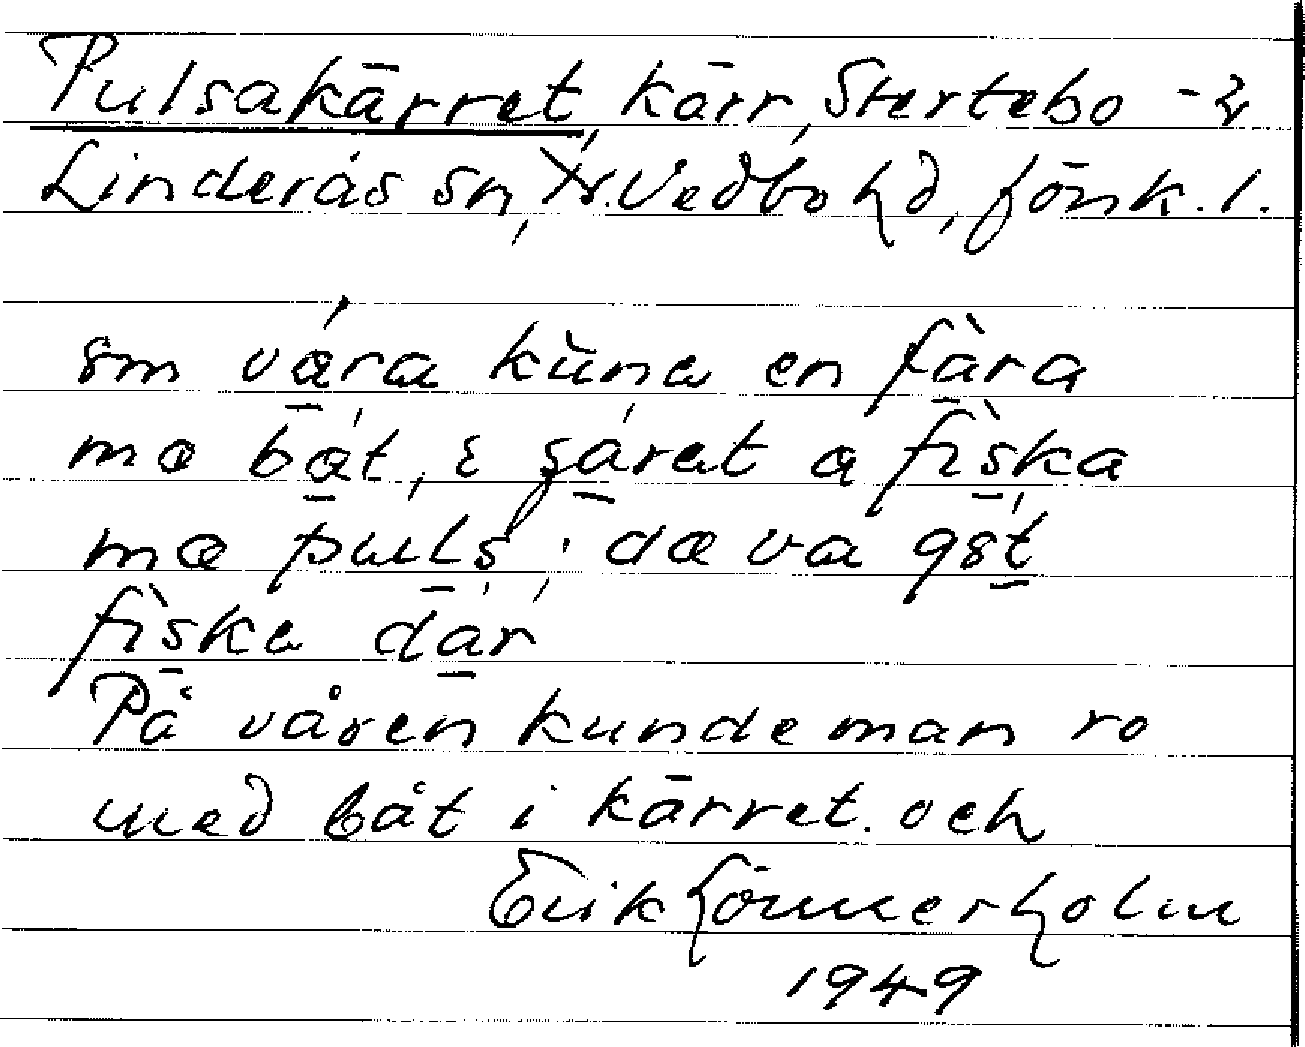 Pulsakärret, kärr, Stertebo
Linderås sn, N. Vedbo hd, Jönk. l.
om våra kuna en fara
mæ båt, i šárat a fiska
mæ puls; dæ va gst
fiska där
På våren kunde man ro
med båt i kärret. och
Erik Lönnerholm
1949